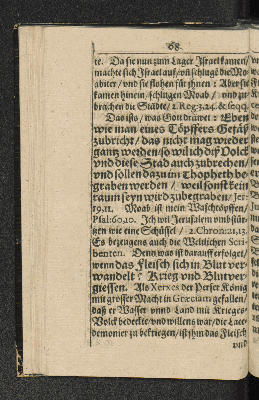 68.
te. Da sie nun zum Lager Israel kamen/
machte sich Israel auf/ vñ schlugē die Mo-
abiter/ und sie flohen für ihnen: Aber sie
kamen hinein/ schlugen Moab/ vnd zu-
brachen die Städte/ 2. Reg. 3.24. & seqq.
Das ists/ was Gott drawet: Eben
wie man eines Töpffers Gefäß
zubricht/ das nicht mag wieder
gantz werden/ so wil ich diß Volck
vnd diese Stad auch zubrechen/
vnd sollen dazu im Thopheth be-
graben werden/ weil sonst kein
raum seyn wird zubegraben/ Jer:
19.11. Moab ist mein Waschtöpffen/
Psal: 60,10. Ich wil Jerusalem vmbstür-
tzen wie eine Schüssel/ 2. Chron: 21,13.
Es bezeugens auch die Weltlichen Scri-
benten. Denn was ist darauff erfolget/
wenn das Fleisch sich in Blut ver-
wandelt? Krieg vnd Blut ver-
giessen. Als Xerxes der Perser König
mit grosser Macht in Græciam gefallen/
daß er Wasser vnnd Land mit Krieges-
Volck bedeckte/ vnd willens war/ die Lace-
demonier zu bekriegen/ ist ihm das Fleisch
vnd